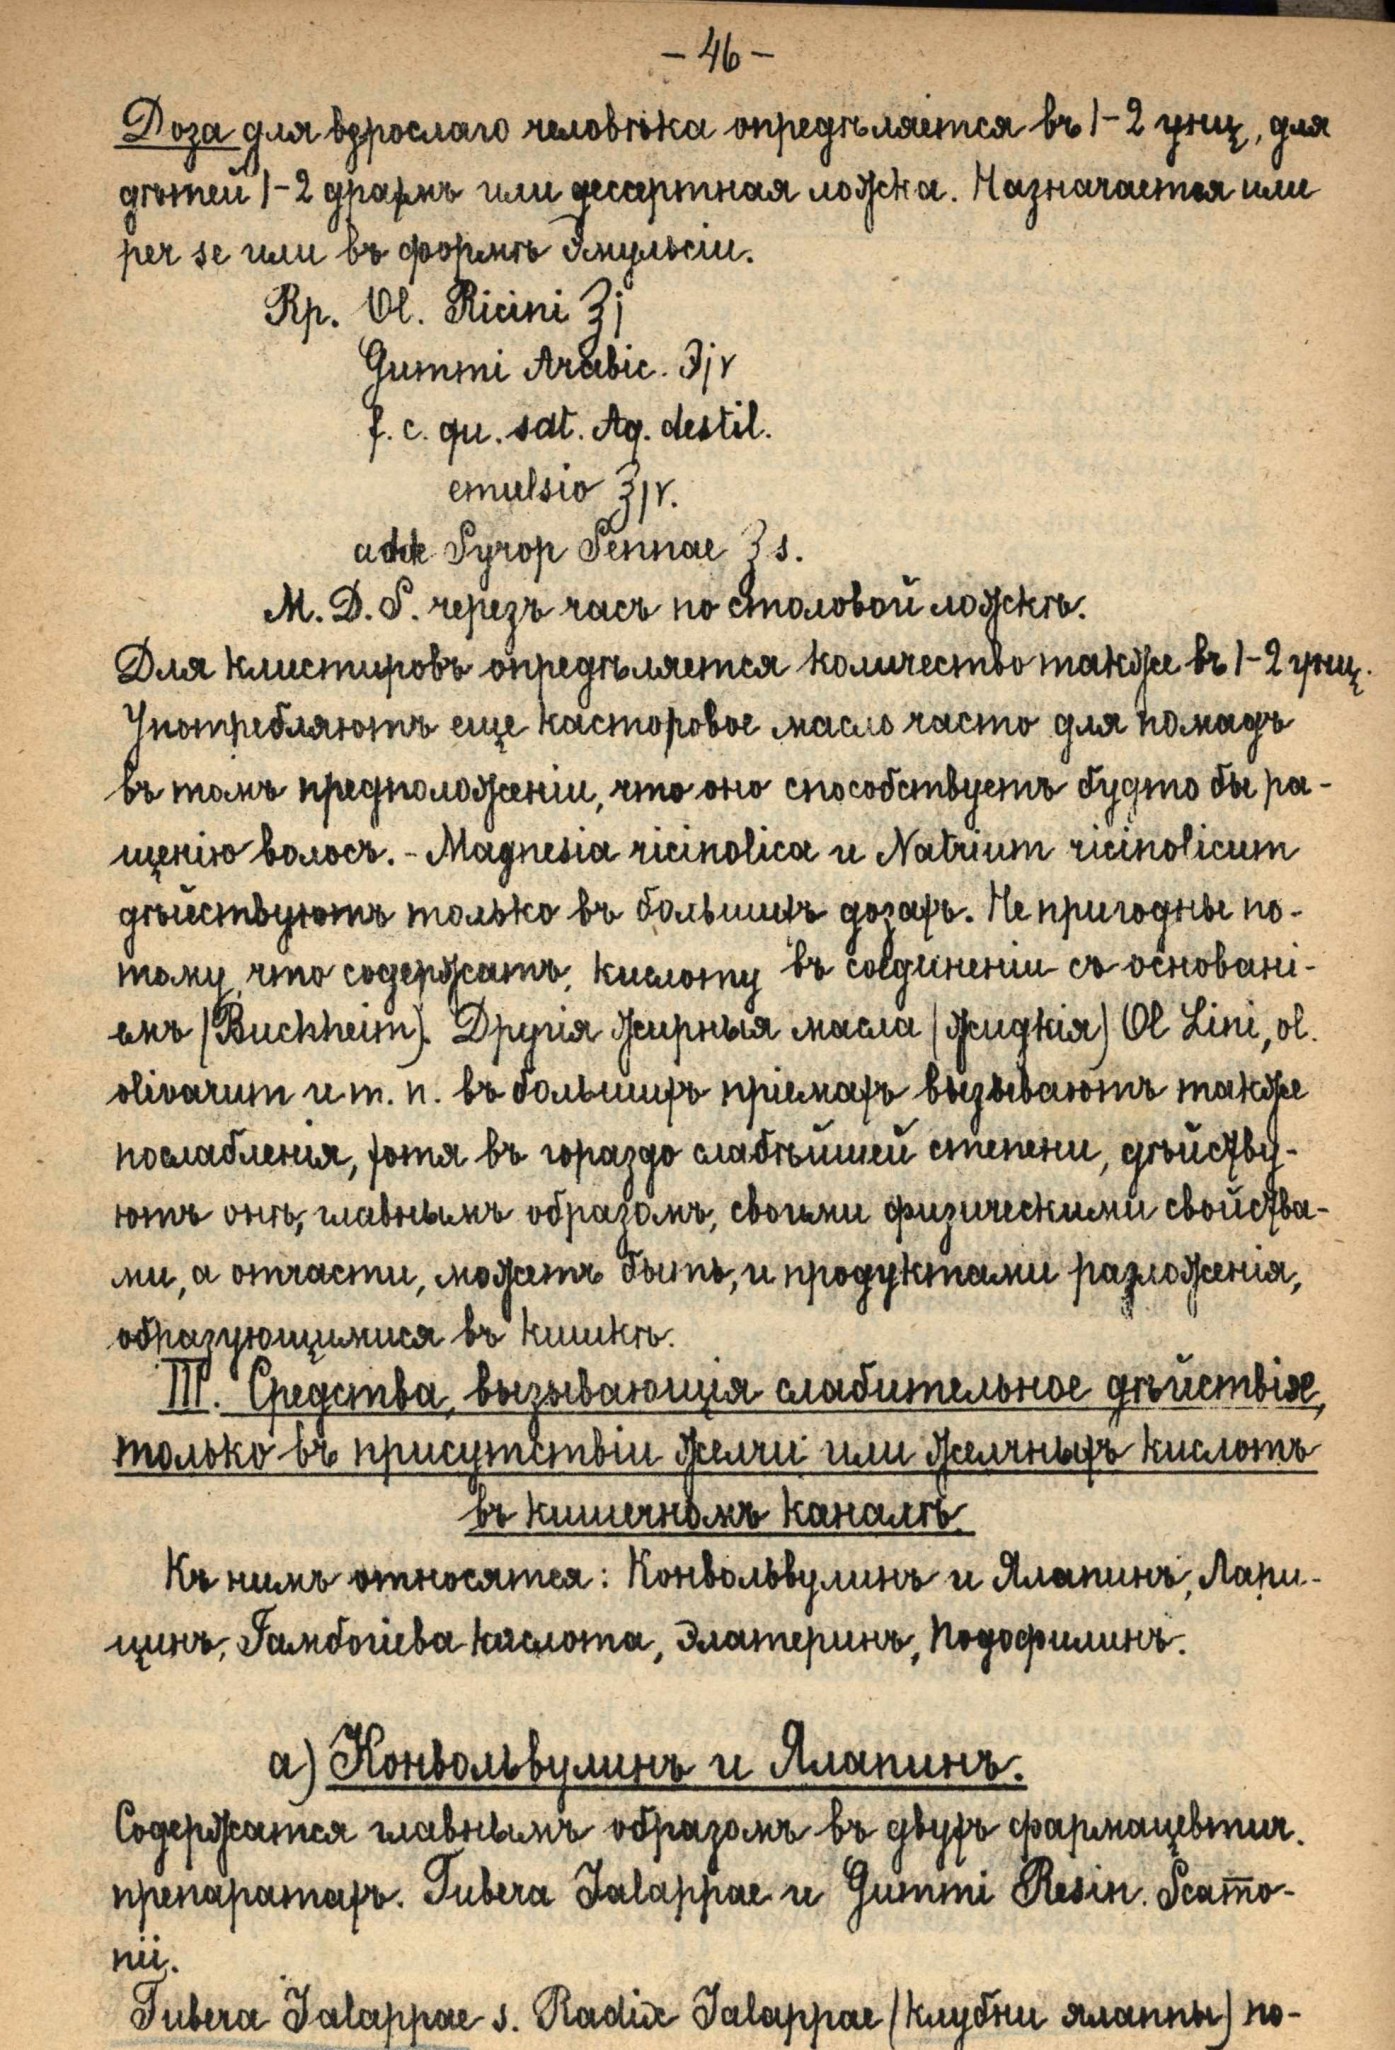 - 46 -
Доза для взрослаго человѣка опредѣляется въ 1-2 унц, для
дѣтей 1-2 драхмъ или дессертная ложка. Назначается или
per se или въ формѣ Эмульсіи.
Rp. Ol. Ricini ℥j
Gummi Arabic. ʒjv
f. c. qu. sat. Aq. destil.
emulsio ℥jv.
adde Syrop Sennae ℥ s.
M. D. S. черезъ часъ по столовой ложкѣ.
Для клистировъ опредѣляется количество также въ 1-2 унц.
Употребляютъ еще касторовое масло часто для помадъ
въ томъ предположеніи, что оно способствуетъ будто бы ра-
щенію волосъ. - Magnesia ricinolica и Natrium ricinolicum
дѣйствуютъ только въ большихъ дозахъ. Не пригодны по-
тому, что содержатъ, кислоту въ соединеніи съ основані-
емъ (Buckheim). Другія жирныя масла (жидкія) Ol Lini, ol.
olivarum и т. п. въ большихъ пріемахъ вызываютъ также
послабленія, хотя въ гораздо слабѣйшей степени, дѣйству-
ютъ онѣ, главнымъ образомъ, своими физическими свойства-
ми, а отчасти, можетъ быть, и продуктами разложенія,
образующимися въ кишкѣ.
III. Средства, вызывающія слабительное дѣйствіе,
только въ присутствіи желчи или желчныхъ кислотъ
въ кишечномъ каналѣ.
Къ нимъ относятся: Конвольвулинъ и Ялапинъ, Лари-
цинъ, Гамбогіева кислота, Элатеринъ, Подофилинъ.
а) Конвольвулинъ и Ялапинъ.
Содержатся главнымъ образомъ въ двухъ фармацевтич.
препаратахъ. Tubera Jalappae и Gummi Resin. Scam̅o-
nii.
Tubera Jalappae s. Radix Jalappae (клубни ялаппы) по-